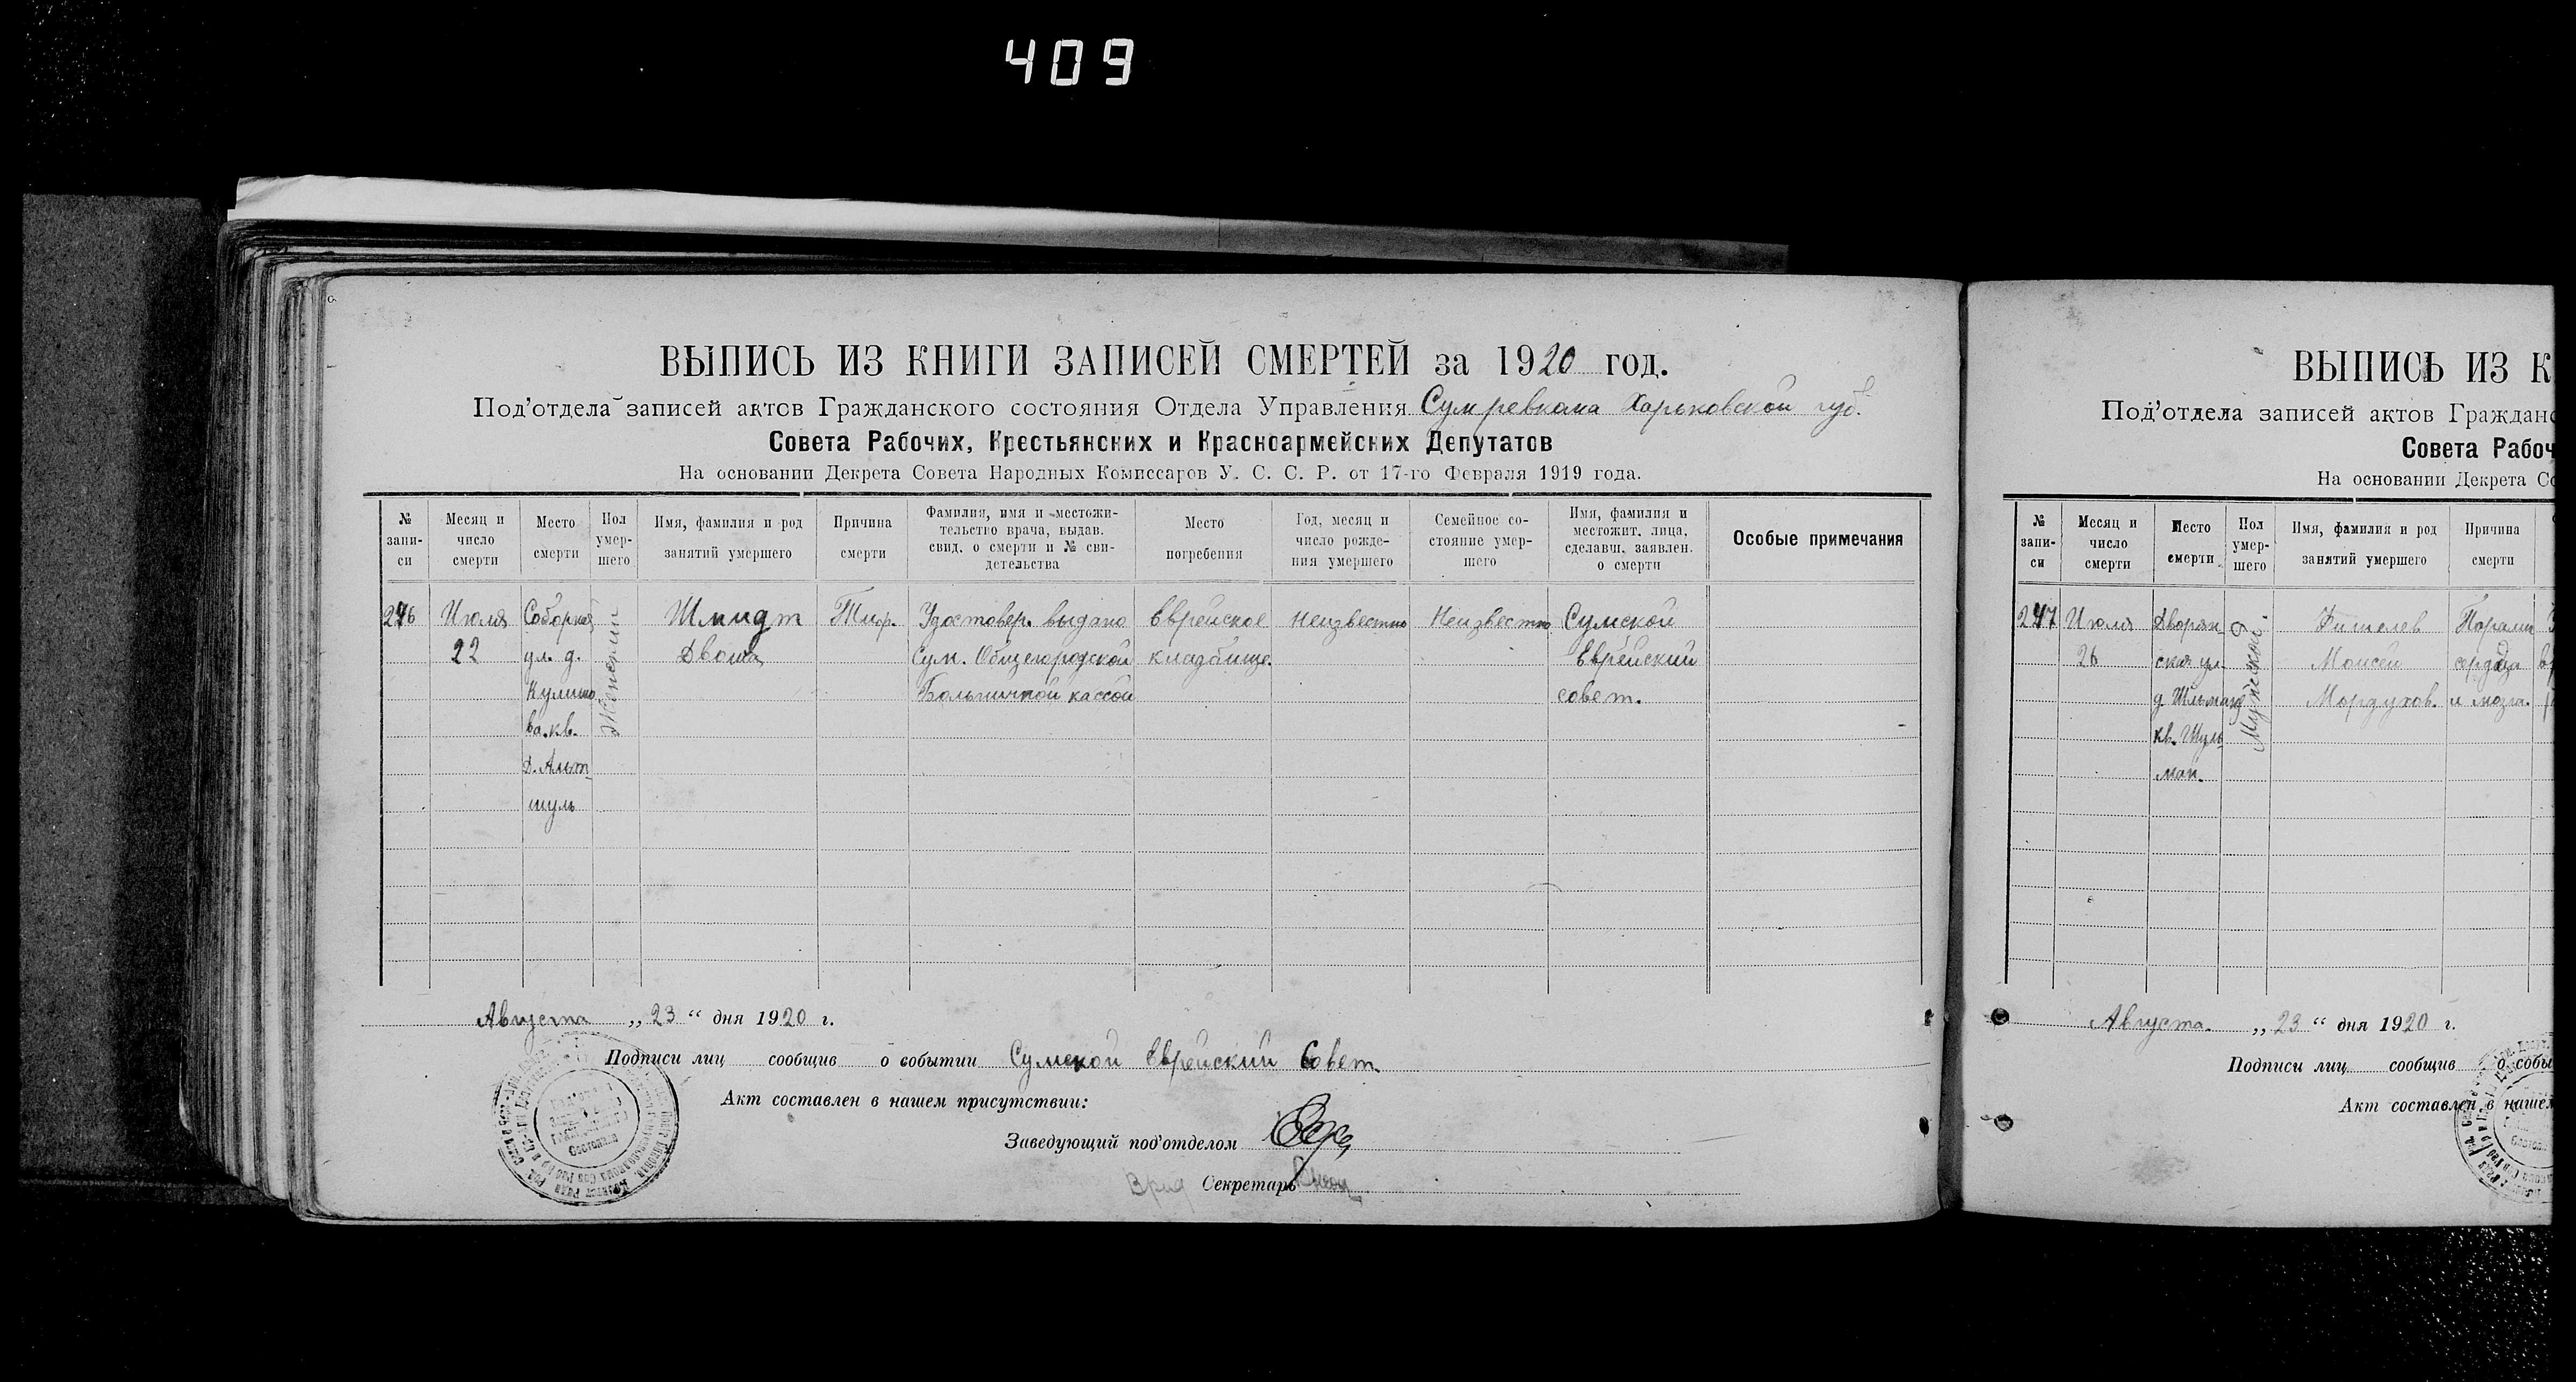 409
ВЫПИСЬ ИЗ КНИГИ ЗАПИСЕЙ СМЕРТЕЙ за 1920 год.
Под'отдела записей актов Гражданского состояния Отдела Управления Сумревкома Харьковской губ.
Совета Рабочих, Крестьянских и Красноармейских Депутатов
На основании Декрета Совета Народных Комиссаров У. С. С. Р. от 17-го Февраля 1919 года.
№ запи-
си
Месяц и
число
смерти
Место
смерти
Пол
умер-
шего
Имя, фамилия и род
занятий умершего
Причина
смерти
Фамилия, имя и местожи-
тельство врача, выдав.
свид. о смерти и № сви-
детельства
Место
погребения
Год, месяц и
число рожде-
ния умершего
Семейное со-
стояние умер-
шего
Имя, фамилия и
местожит. лица,
сделавш. заявлен.
о смерти
Особые примечания
246
Июля
22
Соборная
ул. д.
Кулико
ва. кв.
Д. Альт
шуль
Женский
Шмидт
Двоша
Тиф.
Удостовер. выдано
Сум. Общегородской
Больничной кассой
Еврейское
кладбище.
Неизвестно
Неизвестно
Сумской
Еврейский
совет.
Августа „23“ дня 1920 г.
Подписи лиц сообщив о событии Сумской Еврейский Совет
Акт составлен в нашем присутствии:
Заведующий под'отделом
Врид Секретарь
Состояния
ВЫПИСЬ ИЗ К
Под'отдела записей актов Гражданс
Совета Рабоч
На основании Декрета Со
№
запи-
си
Месяц и
число
смерти
Место
смерти
Пол
умер-
шего
Имя, фамилия и род
занятий умершего
Причина
смерти
247
Июля
26
Дворян
ская ул.
кв. Шуль
ман.
Мужской.
Фишелев
Моисей
Мордухов.
Парали
сердца
и мозга.
Августа. „23“ дня 1920 г.
Подписи лиц сообщив о собы
Акт составлен в нашем